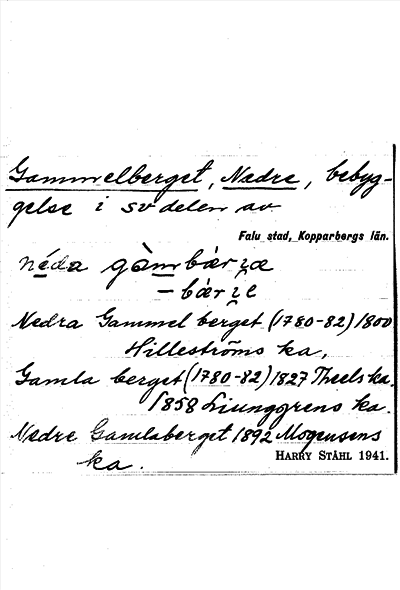 Gammelberget, Nedre, bebyg-
gelse i sv delen av
Falu stad, Kopparbergs län.
néda gàmbàrʒæ
-bárʒe
Nedra Gammelberget (1780-82) 1800
Hilleströms ka,
Gamla berget (1780-82) 1827 Theels ka.
1858 Ljunggrens ka.
Nedre Gamlaberget 1892 Mogensens
ka.
HARRY STÅHL 1941.